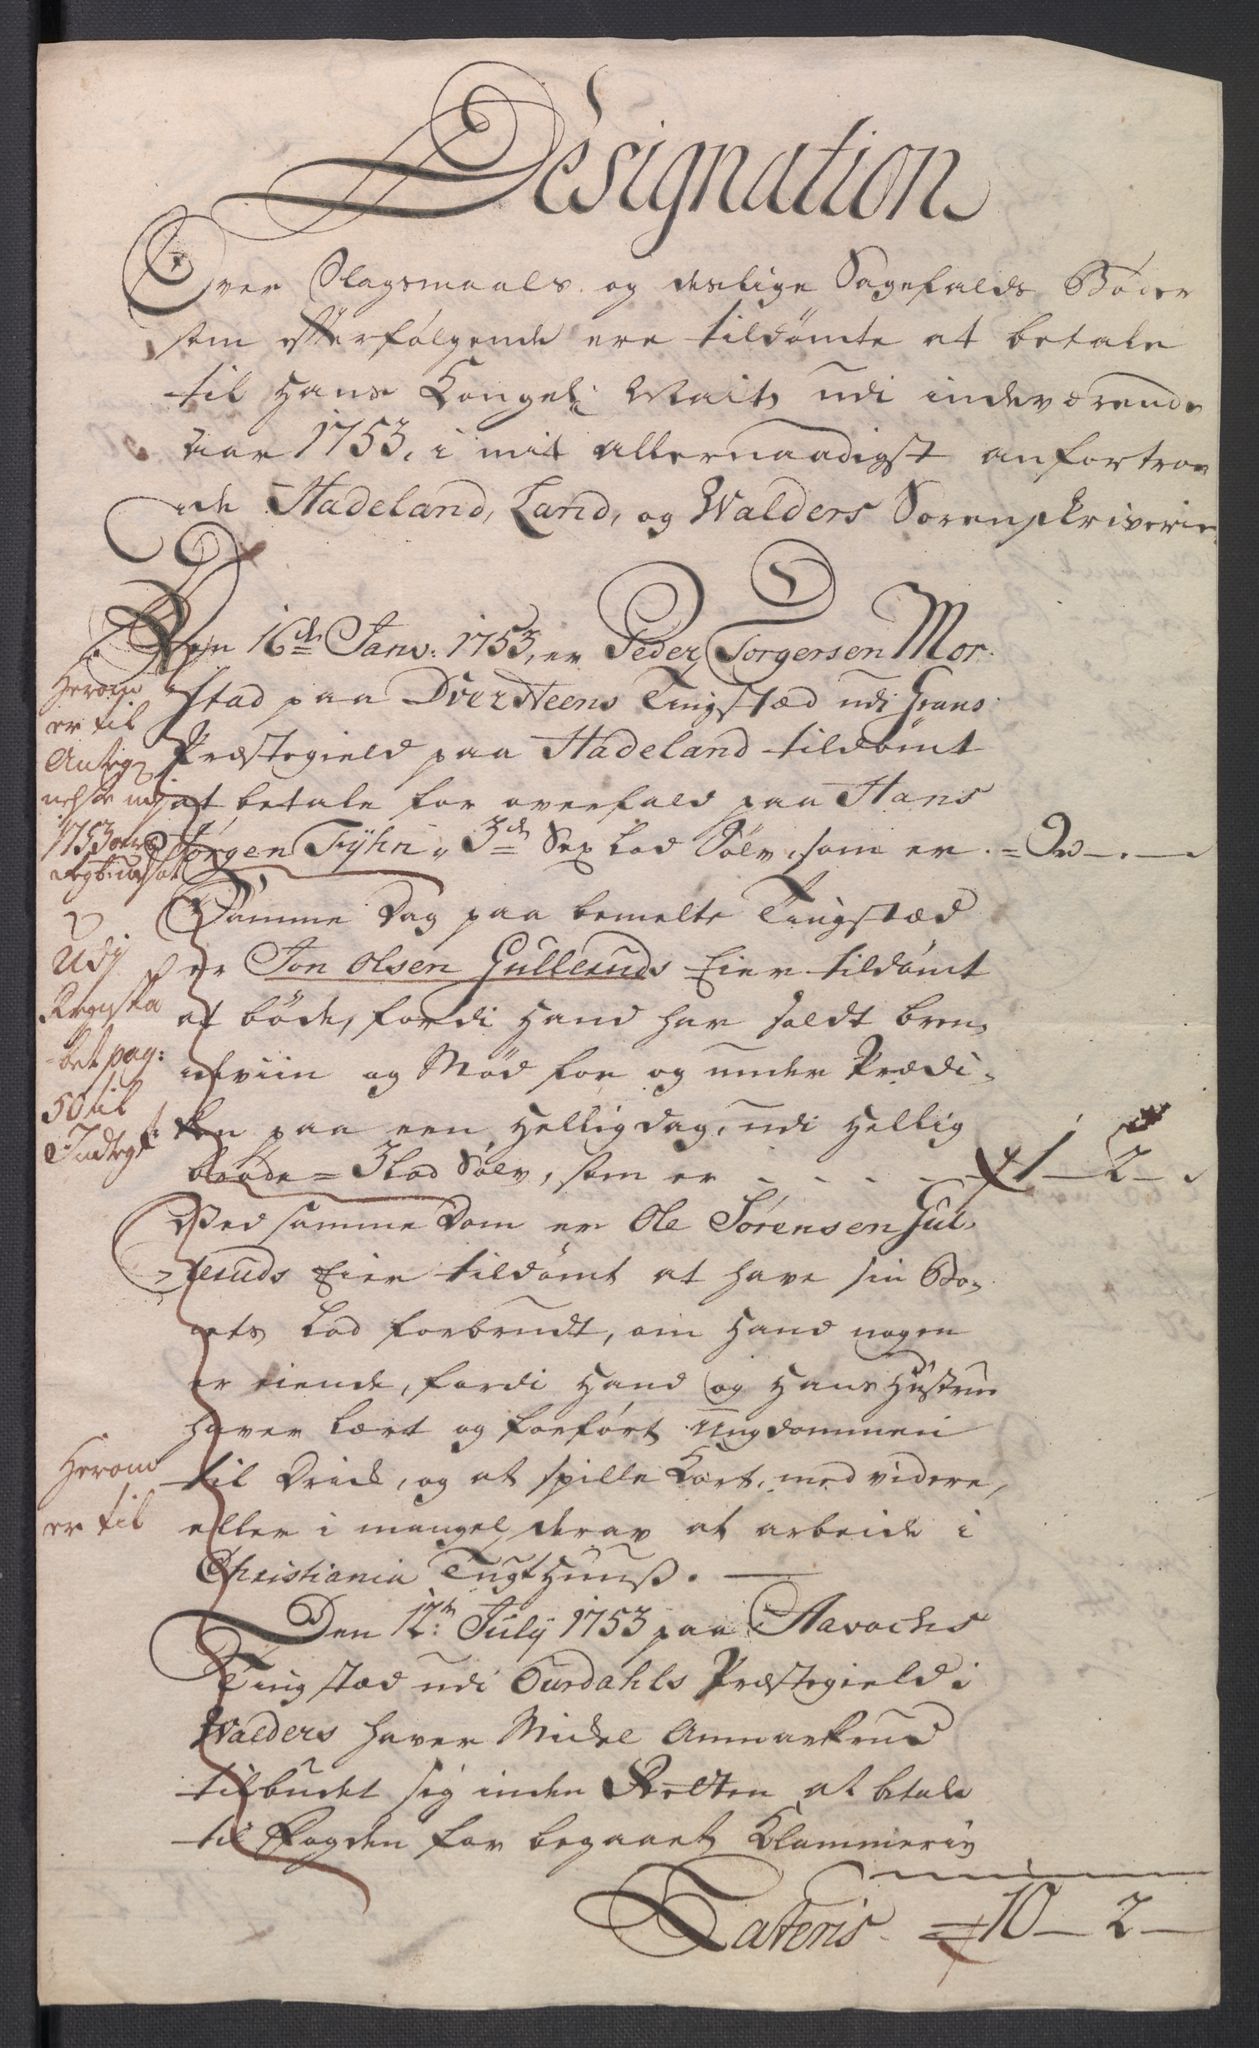 Designation
Over Slagsmaals og deslige Sagefalds Bøder
som efterfølgende ere tildømte at betale
til Hans Kongel: Mait: udi indeværende
aar 1753, i mit allernaadigst anfortroe
de Hadeland, Land, og Walders Sorenskriverie.
Den 16de Janv: 1753, er Peder Torgersen Mor-
stad paa Dversteens Tingstæd udi Grans
Præstegield paa Hadeland tildømt
at betale for overfald paa Hans
Jørgen Fyhn, 3de Sex Lod Sølv, som er
Samme Dag paa bemelte Tingstæd
er Jon Olsen Gulleruds Eier tildømt
at bøde, fordi Hand har soldt bren-
deviin og Mød før og under Prædi-
ken paa een Hellig dag, udi Hellig
brøde = 3 Lod Sølv, som er 1 - 2 -
Ved samme Dom er Ole Sørensen Gul-
leruds Eier tildømt at have sin Bo-
ets Lod forbrudt, om Hand nogen
er eiende, fordi Hand og Hans Hustrue
haver lært og forført Ungdommen
til Drick, og at spille Kort, med videre,
eller i mangel derav at arbeide i
Christiania Tugthuuß.
Den 12te July 1753 paa
Tingstæd udi Præstegield i
Walders haver Michel
tilbudet sig inden Retten at betale
til Fogden for begaaet Klammerie
Lateris = 10 - 2 -
Herom
er til
Anteg
nelse udj
1753
Udj
pag:
50 til
Indtegt
Herom
er til